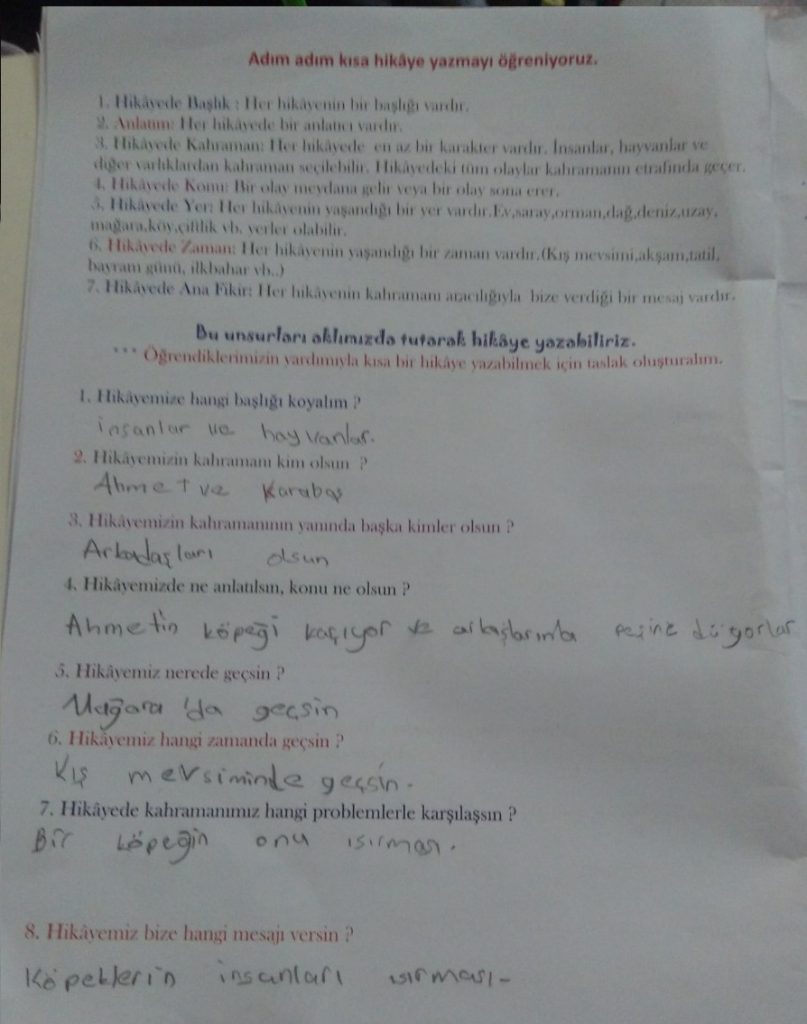 Adım adım kısa hikâye yazmayı öğreniyoruz.
1. Hikâyede Başlık : Her hikâyenin bir başlığı vardır.
2. Anlatım: Her hikâyede bir anlatıcı vardır.
3. Hikâyede Kahraman: Her hikâyede en az bir karakter vardır. İnsanlar, hayvanlar ve
diğer varlıklardan kahraman seçilebilir. Hikâyedeki tüm olaylar kahramanın etrafında geçer.
4. Hikâyede Konu: Bir olay meydana gelir veya bir olay sona erer.
5. Hikâyede Yer: Her hikâyenin yaşandığı bir yer vardır.Ev,saray,orman,dağ,deniz,uzay,
mağara,köy,çiftlik vb. yerler olabilir.
6. Hikâyede Zaman: Her hikâyenin yaşandığı bir zaman vardır.(Kış mevsimi,akşam,tatil,
bayram günü, ilkbahar vb..)
7. Hikâyede Ana Fikir: Her hikâyenin kahramanı aracılığıyla bize verdiği bir mesaj vardır.
Bu unsurları aklımızda tutarak hikâye yazabiliriz.
*** Öğrendiklerimizin yardımıyla kısa bir hikâye yazabilmek için taslak oluşturalım.
1. Hikâyemize hangi başlığı koyalım ?
insanlar ve hayvanlar.
2. Hikâyemizin kahramanı kim olsun ?
Ahmet ve Karabaş
3. Hikâyemizin kahramanının yanında başka kimler olsun ?
Arkadaşları olsun
4. Hikâyemizde ne anlatılsın, konu ne olsun ?
Ahmetin köpeği kaçıyor ve peşine düşyorlar
5. Hikâyemiz nerede geçsin ?
Mağara 'da geçsin
6. Hikâyemiz hangi zamanda geçsin ?
Kış mevsiminde geçsin.
7. Hikâyede kahramanımız hangi problemlerle karşılaşsın ?
Bir köpeğin onu ısırması.
8. Hikâyemiz bize hangi mesajı versin ?
Köpeklerin insanları ısırması-